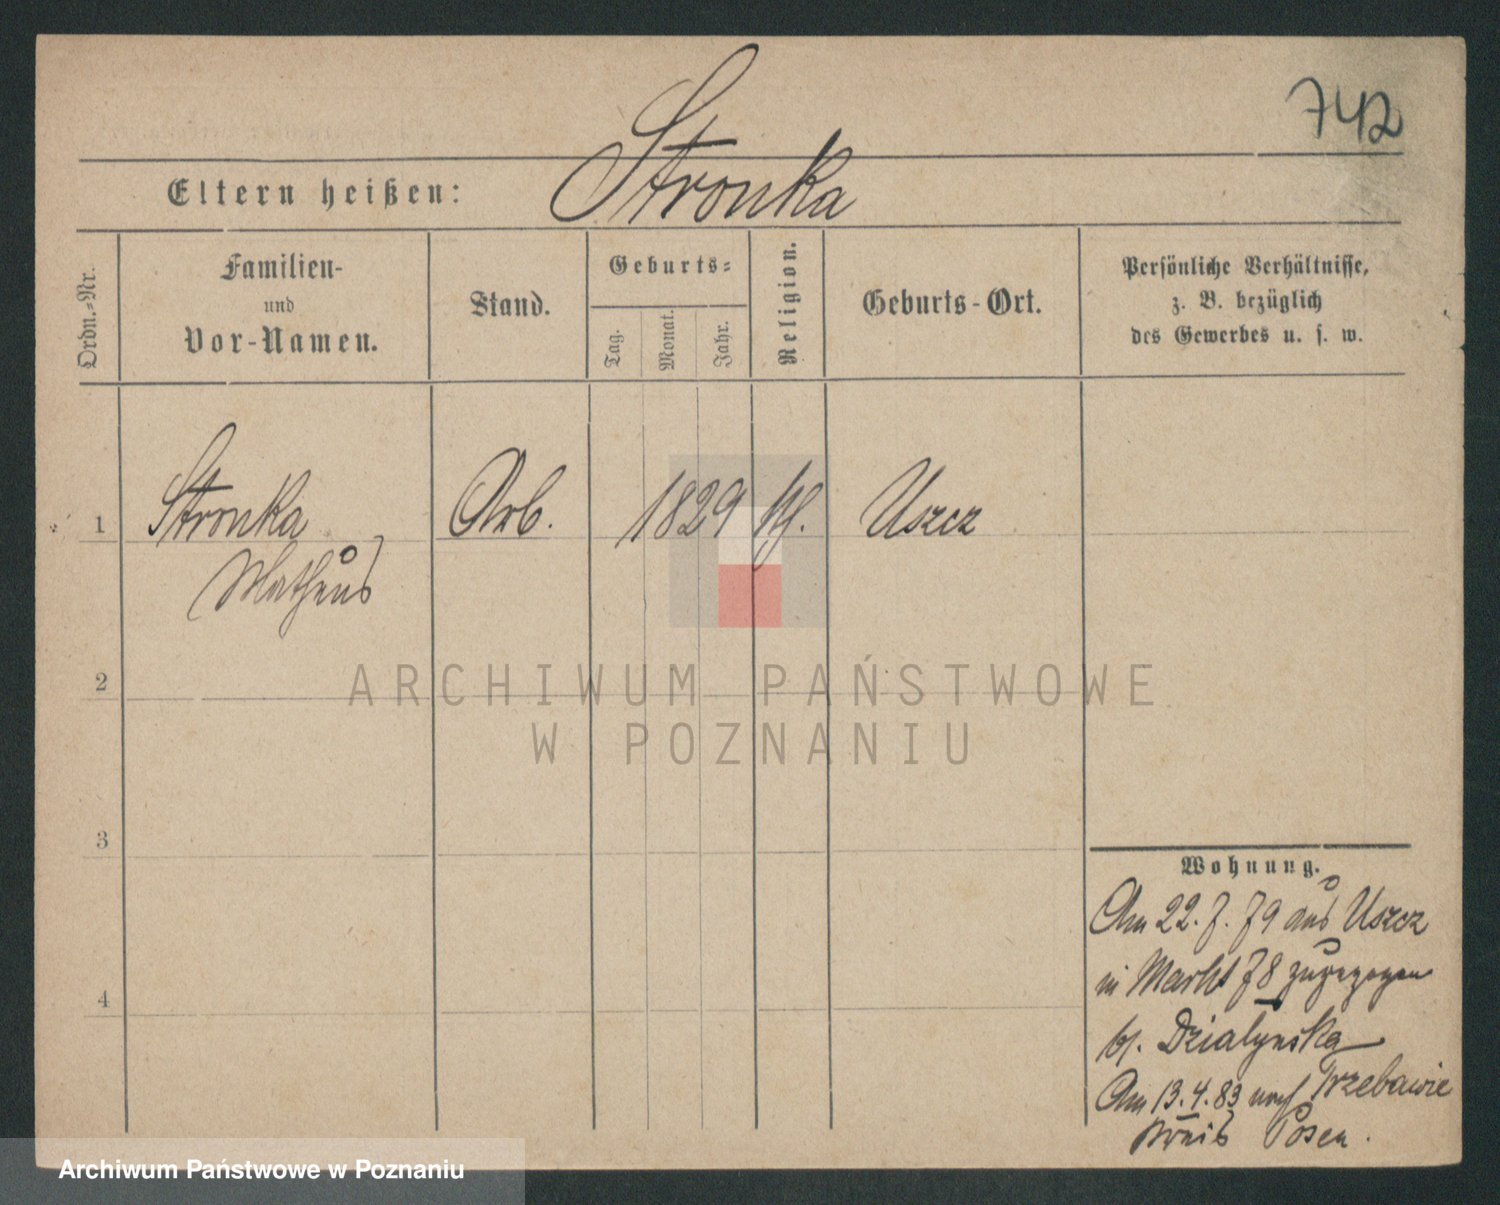 742
Stronka
Eltern heißen:
Ordn.-Nr.
Familien-
und
Vor-Namen.
Stand.
Geburts-
Tag.
Monat.
Jahr.
Religion.
Geburts-Ort.
Persönliche Verhältnisse,
z. B. bezüglich
des Gewerbes u. s. w.
1
Stronka
Matheus
Arb.
1829
kth.
Uszcz
2
3
4
Wohnung.
Am 22. 7. 79 aus Uszcz
in Markt 78 zugezogen
b/. Dzialynska
Am 13.4.83 nach Trzebawie
Kreis Posen.
ARCHIWUM PAŃSTWOWE
W POZNANIU
Archiwum Państwowe w Poznaniu